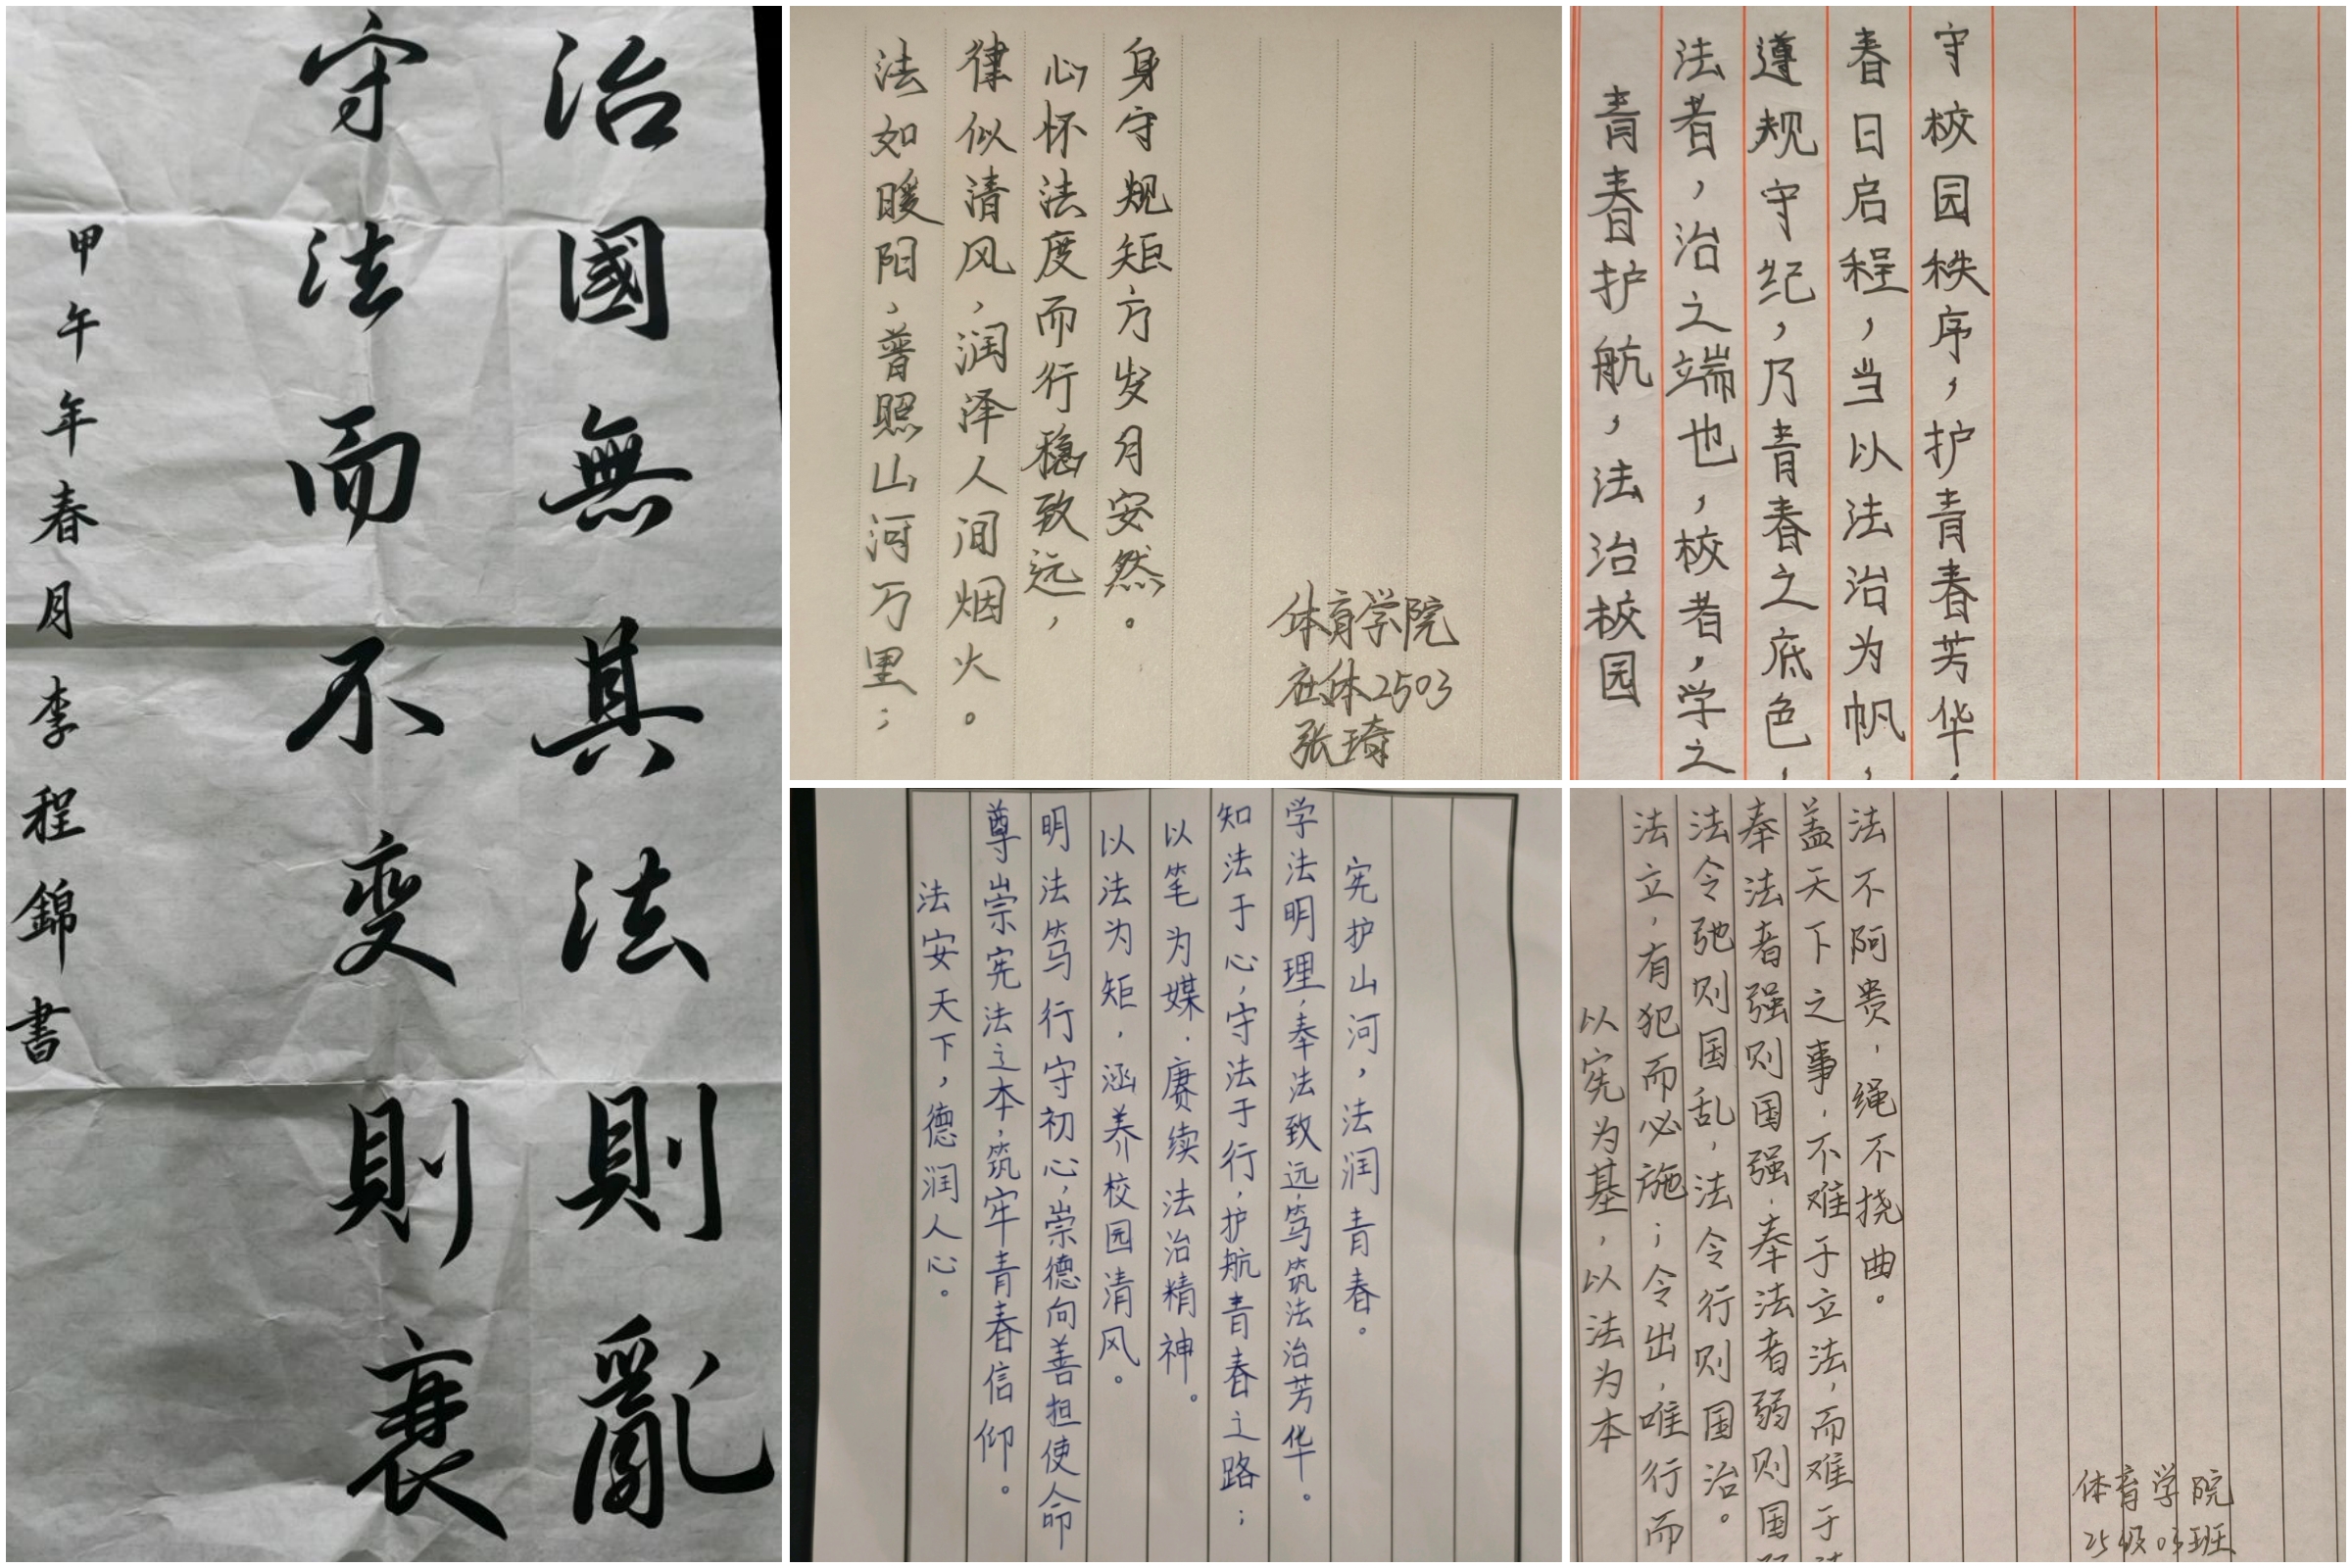 治國無其法則亂
守法而不变則衰
甲午年春月李程錦書
法如暖阳，普照山河万里；
律似清风，润泽人间烟火。
心怀法度而行稳致远，
身守规矩方岁月安然。
体育学院
社体2503
张琦
青春护航，法治校园
法者，治之端也，校者，学之
遵规守纪，乃青春之底色，
春日启程，当以法治为帆，
守校园秩序，护青春芳华，
法安天下，德润人心。
尊崇宪法之本，筑牢青春信仰。
明法笃行守初心，崇德向善担使命
以法为矩，涵养校园清风。
以笔为媒，赓续法治精神。
知法于心，守法于行，护航青春之路；
学法明理，奉法致远，笃筑法治芳华。
宪护山河，法润青春。
以宪为基，以法为本
法立，有犯而必施；令出，唯行而
法令弛则国乱，法令行则国治。
奉法者强则国强，奉法者弱则国
盖天下之事，不难于立法，而难于
法不阿贵，绳不挠曲。
体育学院
25级03班